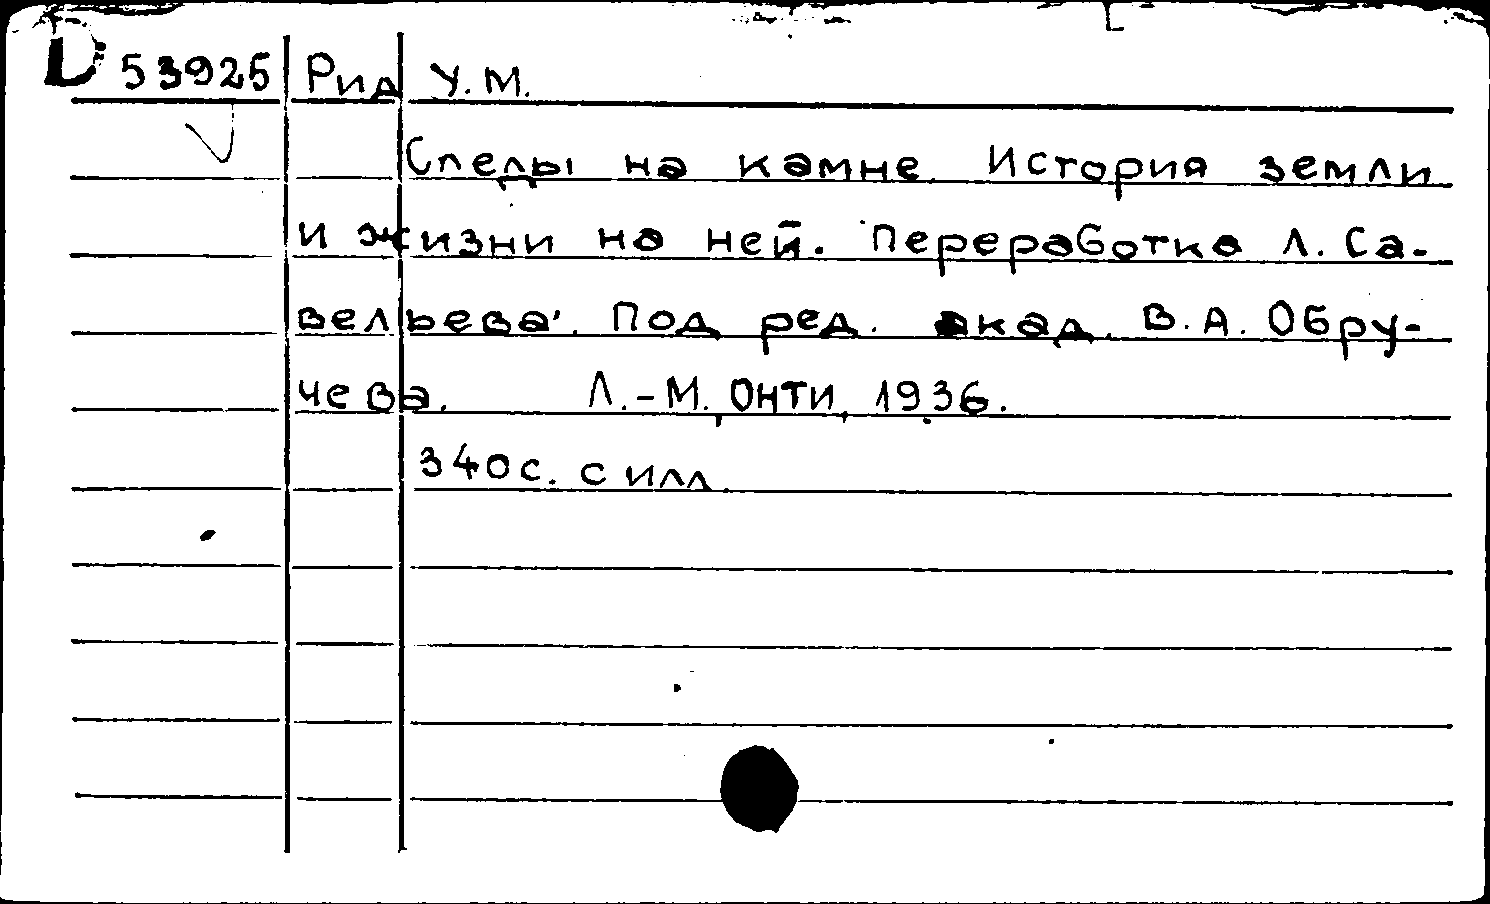 D 53925 Рид У.М.
Следы на камне. История земли
и жизни на ней. Переработка Л. Са-
вельева. Под ред. акад. В.А. Обру-
чева. Л.-М., ОНТИ, 1936.
340с. с илл.